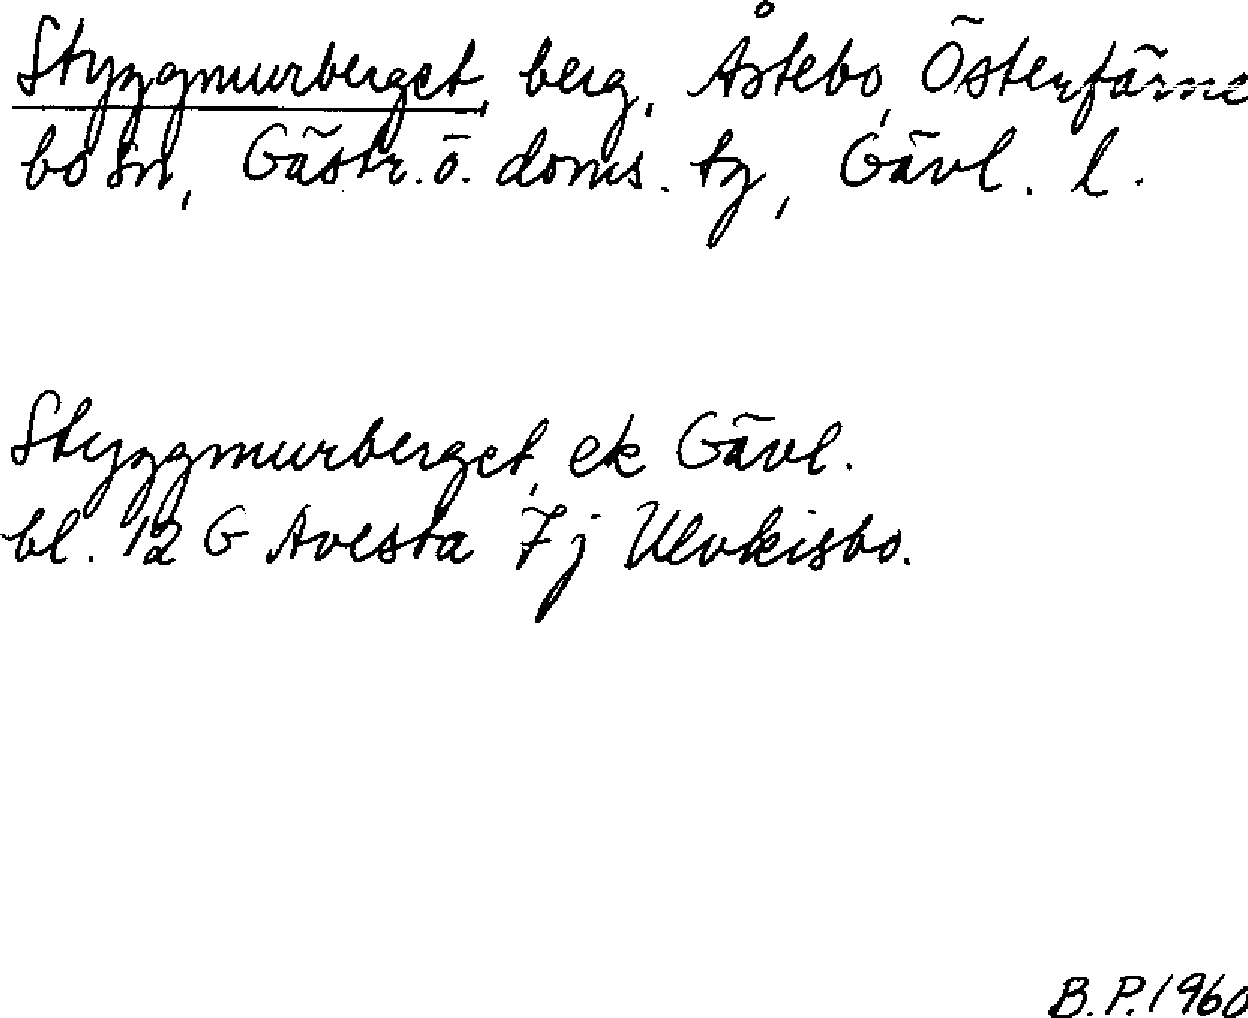 Styggmurberget, berg, Åstebo, Österfärne
bo sn, Gästr. ö. doms. tg, Gävl. l.
Styggmurberget, ek Gävl.
bl. 12 G Avesta 7 j Ulvkisbo.
B.P. 1960